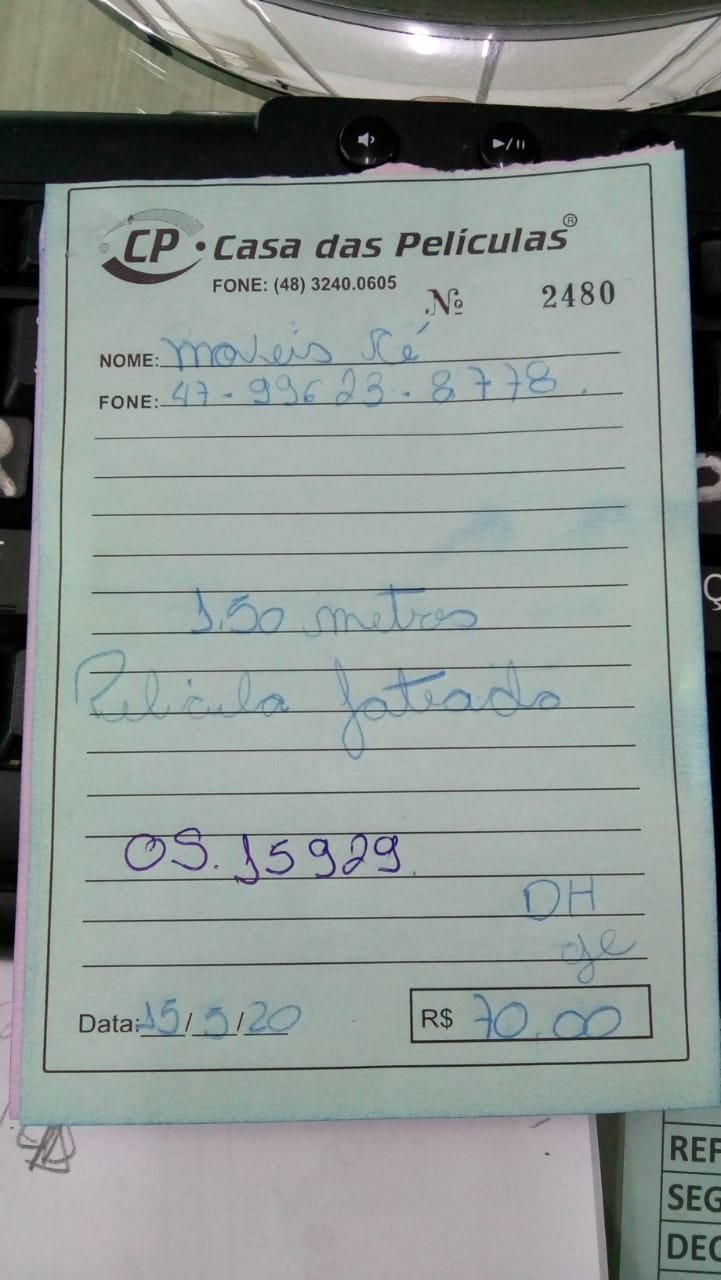 CP · Casa das Películas®
FONE: (48) 3240.0605
Nº 2480
NOME: Moveis Ré
FONE: 47-99623-8778.
1,50 metros
Pelicula Jateado
OS. 15929.
DH
ge
Data: 15/5/20
R$ 70,00
REF
SEG
DEC
Ç